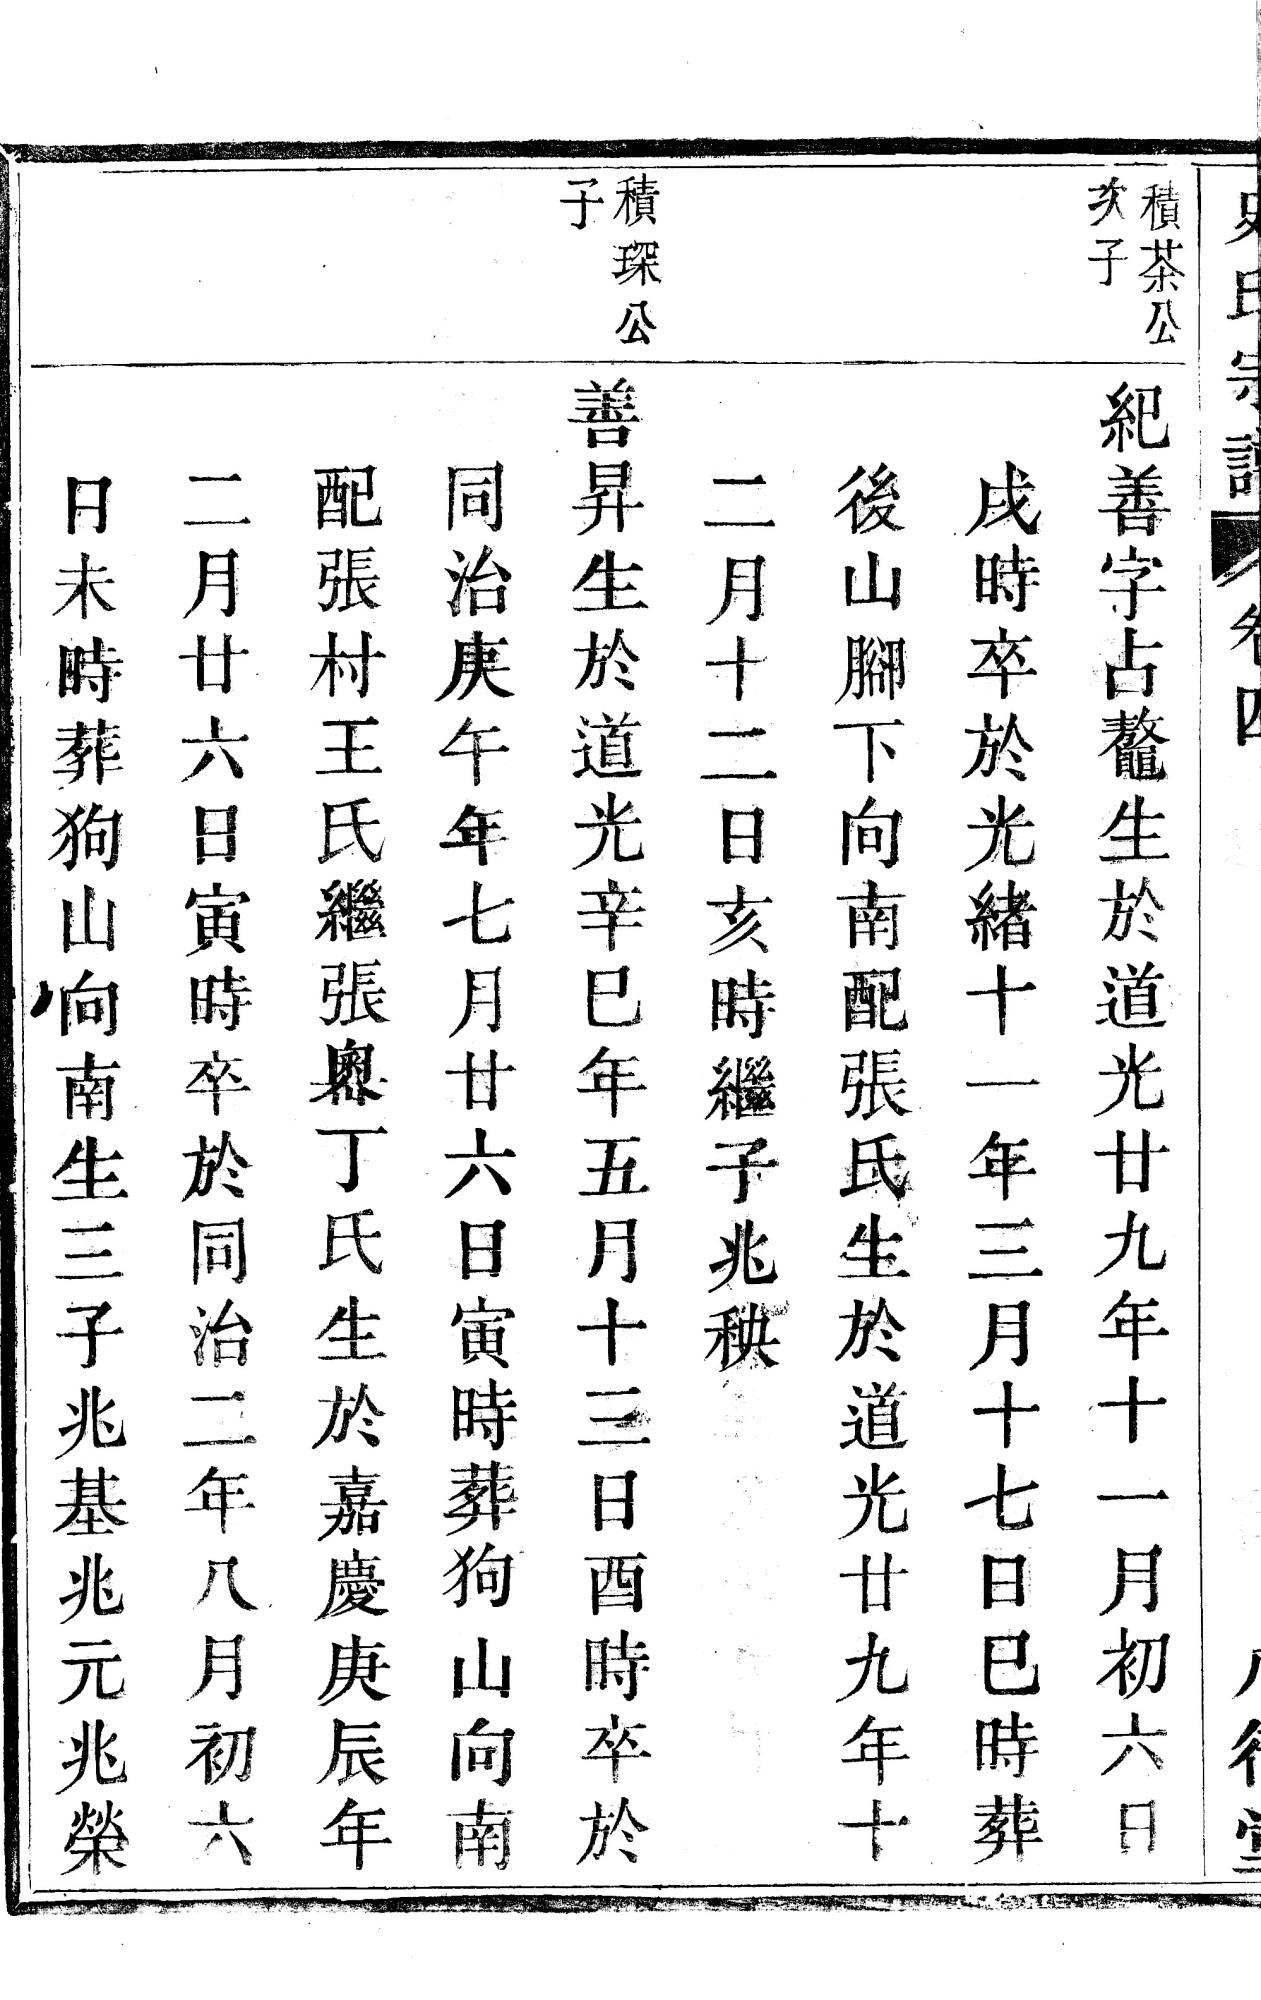 氏宗譜 卷四
積茶公
次子
紀善字占鼇生於道光廿九年十一月初六日
戌時卒於光緒十一年三月十七日巳時葬
後山腳下向南配張氏生於道光廿九年十
二月十二日亥時繼子兆秧
積琛公
子
善昇生於道光辛巳年五月十三日酉時卒於
同治庚午年七月廿六日寅時葬狗山向南
配張村王氏繼張奧丁氏生於嘉慶庚辰年
二月廿六日寅時卒於同治二年八月初六
日未時葬狗山向南生三子兆基兆元兆榮